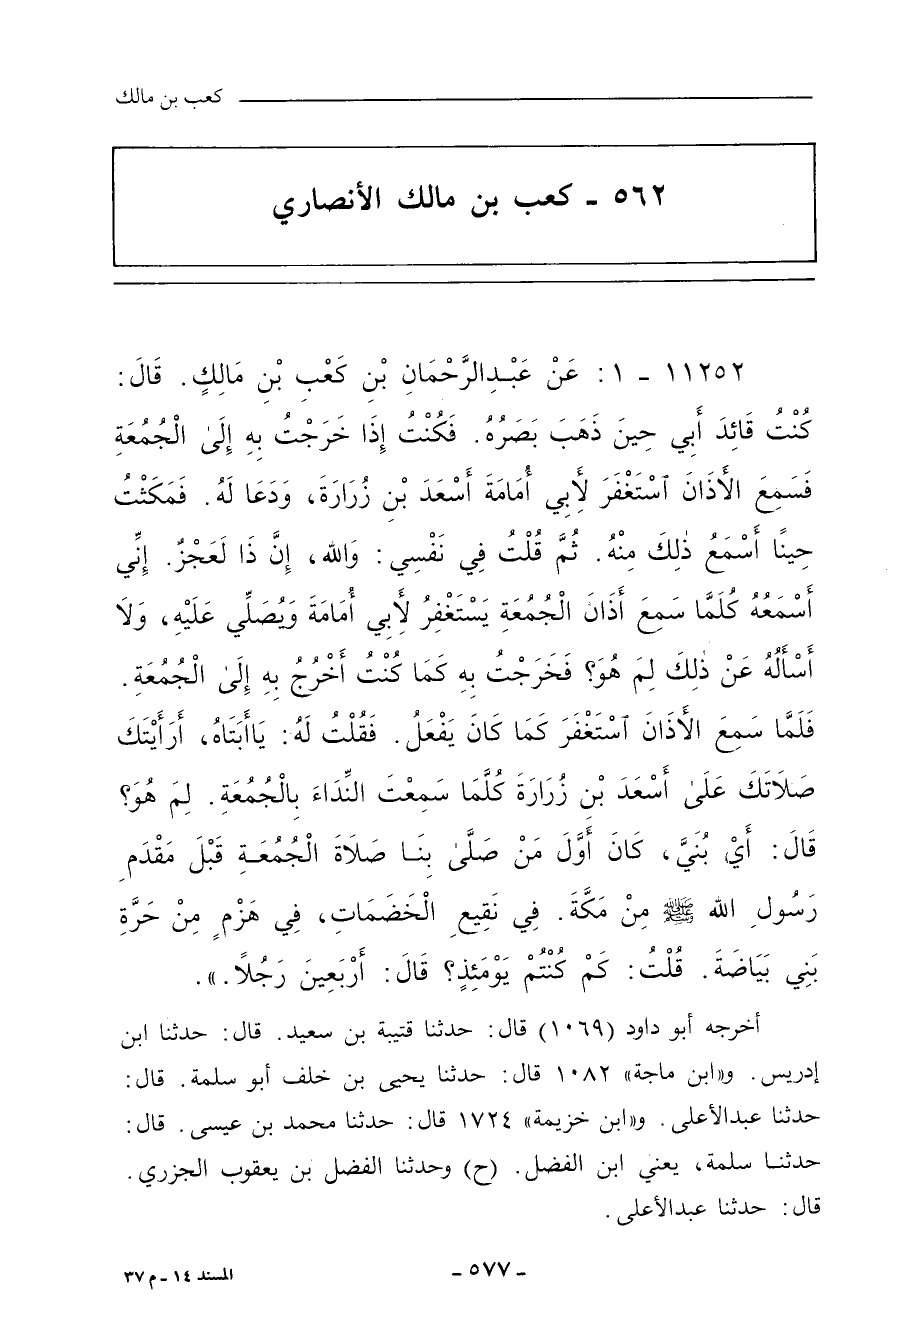 كعب بن مالك
٥٦٢ - كعب بن مالك الأنصاري
١١٢٥٢ - ١: عَنْ عَبْدِالرَّحْمَانِ بْنِ كَعْبِ بْنِ مَالِكٍ. قَالَ:
كُنْتُ قَائِدَ أَبِي حِينَ ذَهَبَ بَصَرُهُ. فَكُنْتُ إِذَا خَرَجْتُ بِهِ إِلَىٰ الْجُمُعَةِ
فَسَمِعَ الأَذَانَ ٱسْتَغْفَرَ لِأَبِي أُمَامَةَ أَسْعَدَ بْنِ زُرَارَةَ، وَدَعَا لَهُ. فَمَكَثْتُ
حِينًا أَسْمَعُ ذٰلِكَ مِنْهُ. ثُمَّ قُلْتُ فِي نَفْسِي: وَالله، إِنَّ ذَا لَعَجْزٌ. إِنِّي
أَسْمَعُهُ كُلَّمَا سَمِعَ أَذَانَ الْجُمُعَةِ يَسْتَغْفِرُ لِأَبِي أُمَامَةَ وَيُصَلِّي عَلَيْهِ، وَلَا
أَسْأَلُهُ عَنْ ذٰلِكَ لِمَ هُوَ؟ فَخَرَجْتُ بِهِ كَمَا كُنْتُ أَخْرُجُ بِهِ إِلَىٰ الْجُمُعَةِ.
فَلَمَّا سَمِعَ الأَذَانَ ٱسْتَغْفَرَ كَمَا كَانَ يَفْعَلُ. فَقُلْتُ لَهُ: يَاأَبَتَاهُ، أَرَأَيْتَكَ
صَلَاتَكَ عَلَىٰ أَسْعَدَ بْنِ زُرَارَةَ كُلَّمَا سَمِعْتَ النِّدَاءَ بِالْجُمُعَةِ. لِمَ هُوَ؟
قَالَ: أَيْ بُنَيَّ، كَانَ أَوَّلَ مَنْ صَلَّىٰ بِنَا صَلَاةَ الْجُمُعَةِ قَبْلَ مَقْدَمِ
رَسُولِ الله ﷺ مِنْ مَكَّةَ. فِي نَقِيعِ الْخَضَمَاتِ، فِي هَزْمٍ مِنْ حَرَّةِ
بَنِي بَيَاضَةَ. قُلْتُ: كَمْ كُنْتُمْ يَوْمَئِذٍ؟ قَالَ: أَرْبَعِينَ رَجُلًا.».
أخرجه أبو داود (١٠٦٩) قال: حدثنا قتيبة بن سعيد. قال: حدثنا ابن
إدريس. و«ابن ماجة» ١٠٨٢ قال: حدثنا يحيى بن خلف أبو سلمة. قال:
حدثنا عبدالأعلى. و«ابن خزيمة» ١٧٢٤ قال: حدثنا محمد بن عيسى. قال:
حدثنا سلمة، يعني ابن الفضل. (ح) وحدثنا الفضل بن يعقوب الجزري.
قال: حدثنا عبدالأعلى.
- ٥٧٧ -
المسند ١٤ - م ٣٧